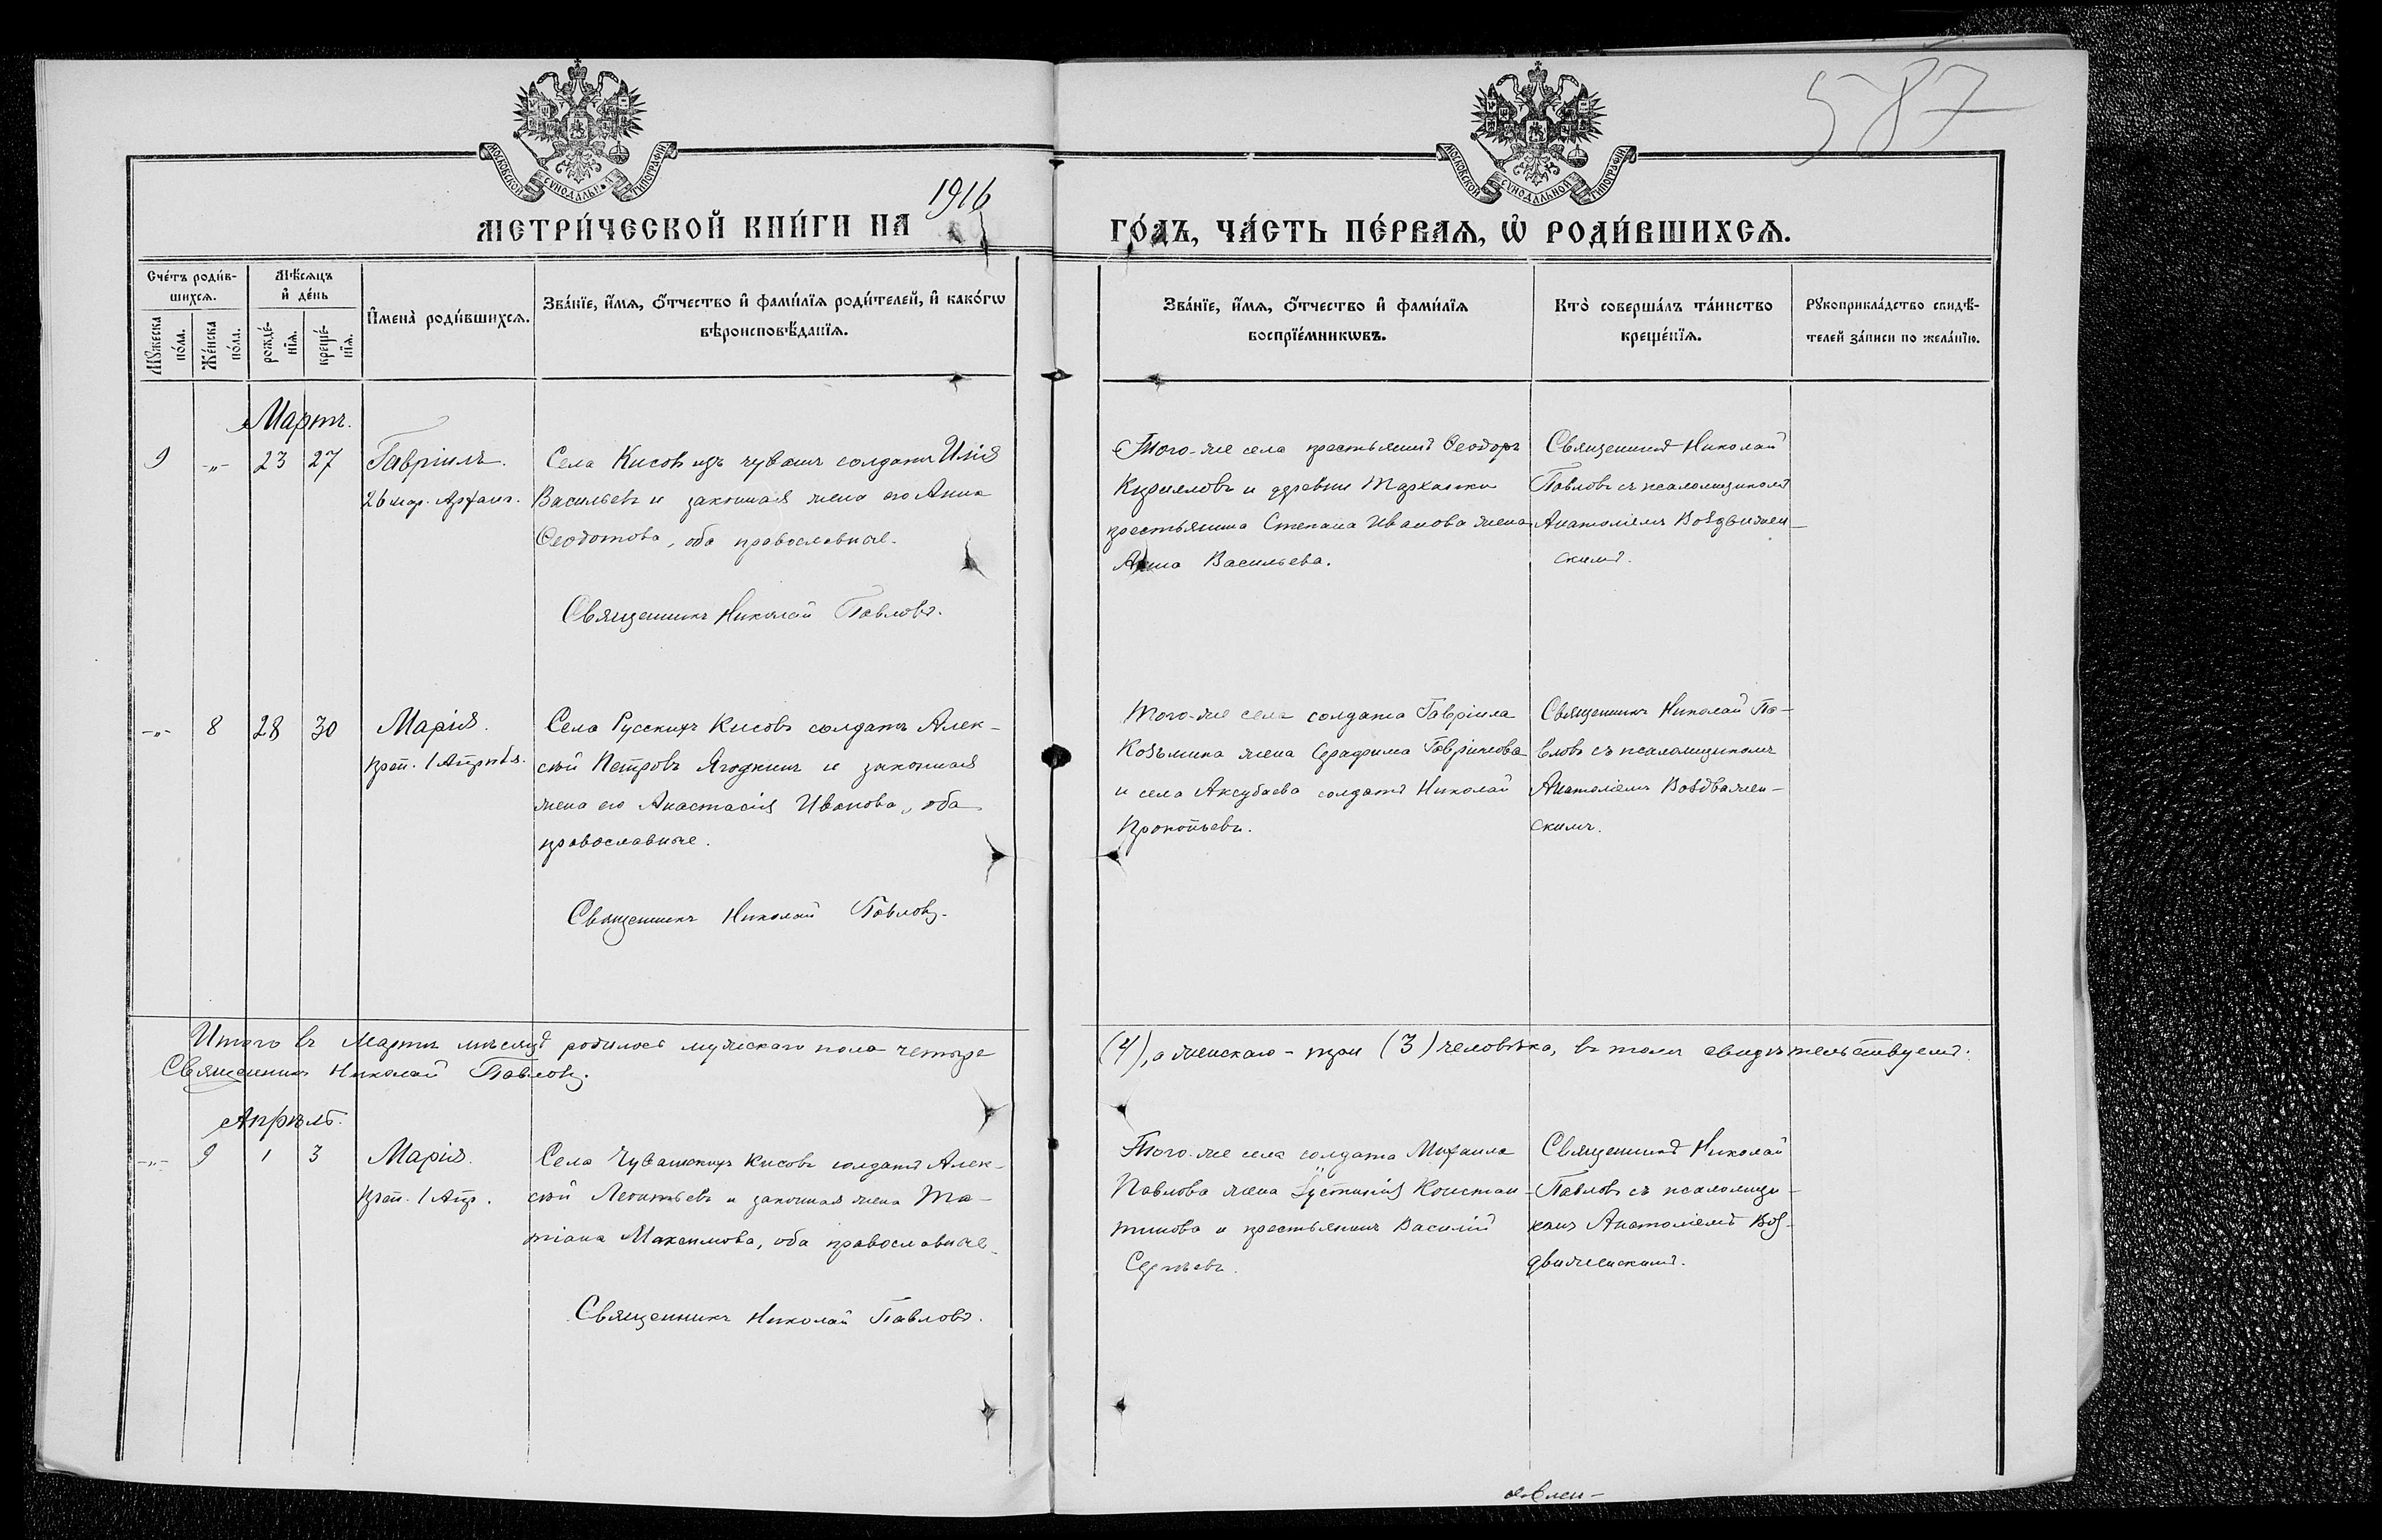 587
МОСКОВСКОЙ СУНОДАЛЬНОЙ ТИПОГРАФІИ
МОСКОВСКОЙ СУНОДАЛЬНОЙ ТИПОГРАФІИ
МЕТРИ́ЧЕСКОЙ КНИ́ГИ НА 1916
ГО́ДЪ, ЧА́СТЬ ПЕ́РВАЯ, Ѡ РОДИ́ВШИХСЯ.
Сче́тъ роди́в-
шихся.
Мꙋ́жеска по́ла.
Же́нска по́ла.
Мѣ́сяцъ
и де́нь
рожде́-
нїя.
креще́-
нїя.
Имена̀ роди́вшихся.
Зва́нїе, и́мя, о́тчество и фами́лїя роди́телей, и како́гѡ
вѣроисповѣ́данїя.
Зва́нїе, и́мя, о́тчество и фами́лїя
воспрїе́мникѡвъ.
Кто̀ соверша́лъ та́инство
креще́нїя.
Рꙋкоприкла́дство свидѣ́-
телей за́писи по жела́нїю.
Мартъ.
9 -„- 23 27
Гавріилъ.
26 мар. Арханг.
Села Кисовъ изъ чувашъ солдатъ Илія
Васильевъ и законная жена его Анна
Ѳеодотова, оба православные.
Священникъ Николай Павловъ.
Того-же села крестьянинъ Ѳеодоръ
Кирилловъ и деревни Тарханки
крестьянина Степана Иванова жена
Анна Васильева.
Священникъ Николай
Павловъ съ псаломщикомъ
Анатоліемъ Воздвижен-
скимъ.
-„- 8 28 30
Марія.
преп. 1 Апрѣля.
Села Русскихъ Кисовъ солдатъ Алек-
сѣй Петровъ Ягодкинъ и законная
жена его Анастасія Иванова, оба
православные.
Священникъ Николай Павловъ.
Того-же села солдата Гавріила
Козьмина жена Серафима Гавріилова
и села Аксубаева солдатъ Николай
Прокопьевъ.
Священникъ Николай Па-
вловъ съ псаломщикомъ
Анатоліемъ Воздвижен-
скимъ.
Итого въ Мартѣ мѣсяцѣ родилось мужскаго пола четыре
(4), а женскаго - три (3) человѣка, въ томъ свидѣтельствуемъ:
Священникъ Николай Павловъ.
Апрѣль.
-„- 9 1 3
Марія.
преп. 1 Апр.
Села Чувашскихъ Кисовъ солдатъ Алек-
сѣй Леонтьевъ и законная жена Та-
тіана Максимова, оба православные.
Священникъ Николай Павловъ.
Того-же села солдата Михаила
Павлова жена Іустинія Констан-
тинова и крестьянинъ Василій
Сергѣевъ.
Священникъ Николай
Павловъ съ псаломщи-
комъ Анатоліемъ Воз-
движенскимъ.